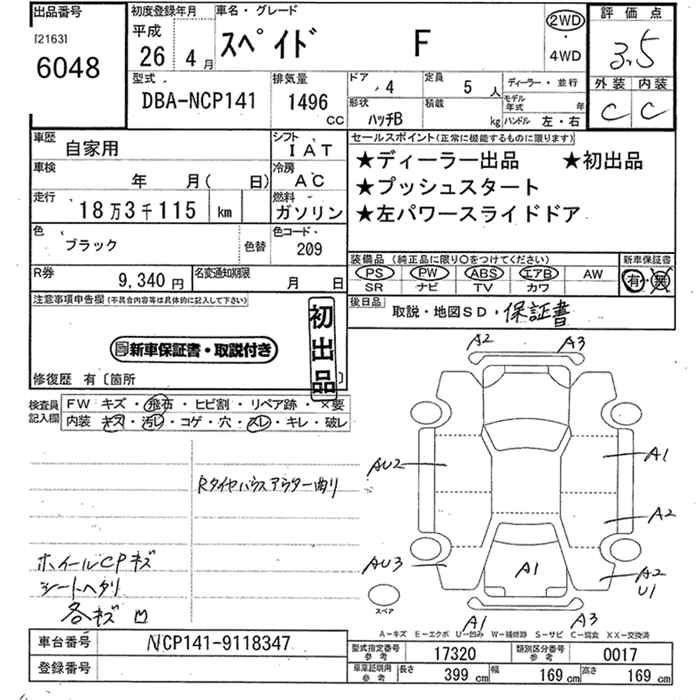 出品番号 初度登録年月 車名・グレード 評価点
[2163] 平成
6048 26 4月 スペイド F 2WD・4WD 3.5
型式 排気量 ドア 4 定員 5人 ディーラー・並行 外装 内装
DBA-NCP141 1496CC 形状 ハッチB 積載 kg モデル年式 年 ハンドル 左・右 C C
車歴 自家用 シフト IAT セールスポイント(正常に機能するものに限ります)
車検 年 月( 日) 冷房 AC ★ディーラー出品 ★初出品
★プッシュスタート
走行 18万3千115 km 燃料 ガソリン ★左パワースライドドア
色 ブラック 色替 色コード 209
装備品(純正品に限り〇をつけてください) 新車保証書
PS PW ABS エアB AW 有・無
SR ナビ TV カワ
R券 9,340円 名変通知期限 月 日
後日品 取説・地図SD・保証書
注意事項申告欄(不具合内容等は具体的に記入して下さい)
初出品
新車保証書・取説付き
修復歴 有〔箇所 〕
検査員記入欄 FW キズ・飛石・ヒビ割・リペア跡・×要
内装 キズ・汚レ・コゲ・穴・スレ・キレ・破レ
A2 A3
AU2 A1
Rタイヤハウスアウター曲り
A2
ホイールCPキズ AU3 A1 A2
U1
シートヘタリ
各キズ凹 スペア
A1 A3
A-キズ E-エクボ U-凹み W-補修跡 S-サビ C-腐食 XX-交換済
車台番号 NCP141-9118347
登録番号
型式指定番号 参考 17320 類別区分番号 参考 0017
車庫証明用 参考 長さ 399cm 幅 169cm 高さ 169cm